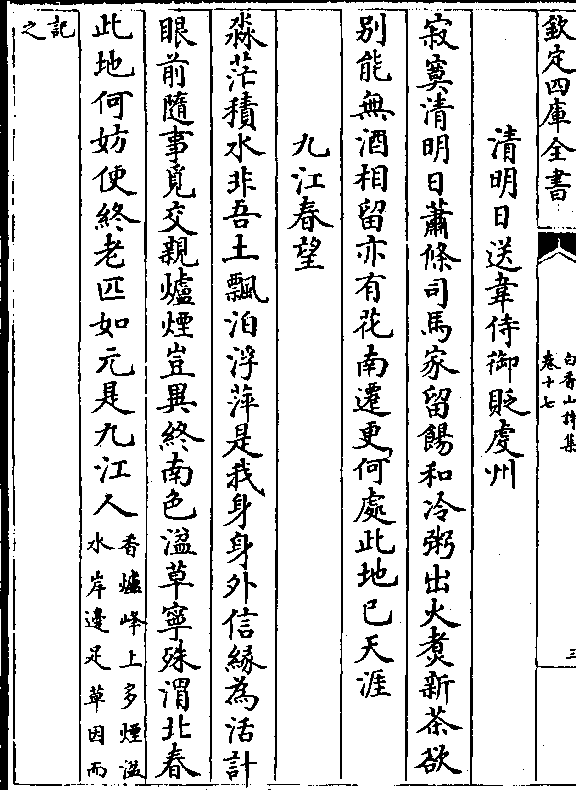 欽定四庫全書
白香山詩集
卷十七
三
清明日送韋侍御貶虔州
寂寞清明日蕭條司馬家留餳和冷粥出火煑新茶欲
别能無酒相留亦有花南遷更何處此地已天涯
九江春望
淼茫積水非吾土飄泊浮萍是我身身外信緣為活計
眼前隨事覓交親爐煙豈異終南色湓草寧殊渭北春
此地何妨便終老匹如元是九江人香爐峰上多煙湓
水岸邊足草因而
記
之